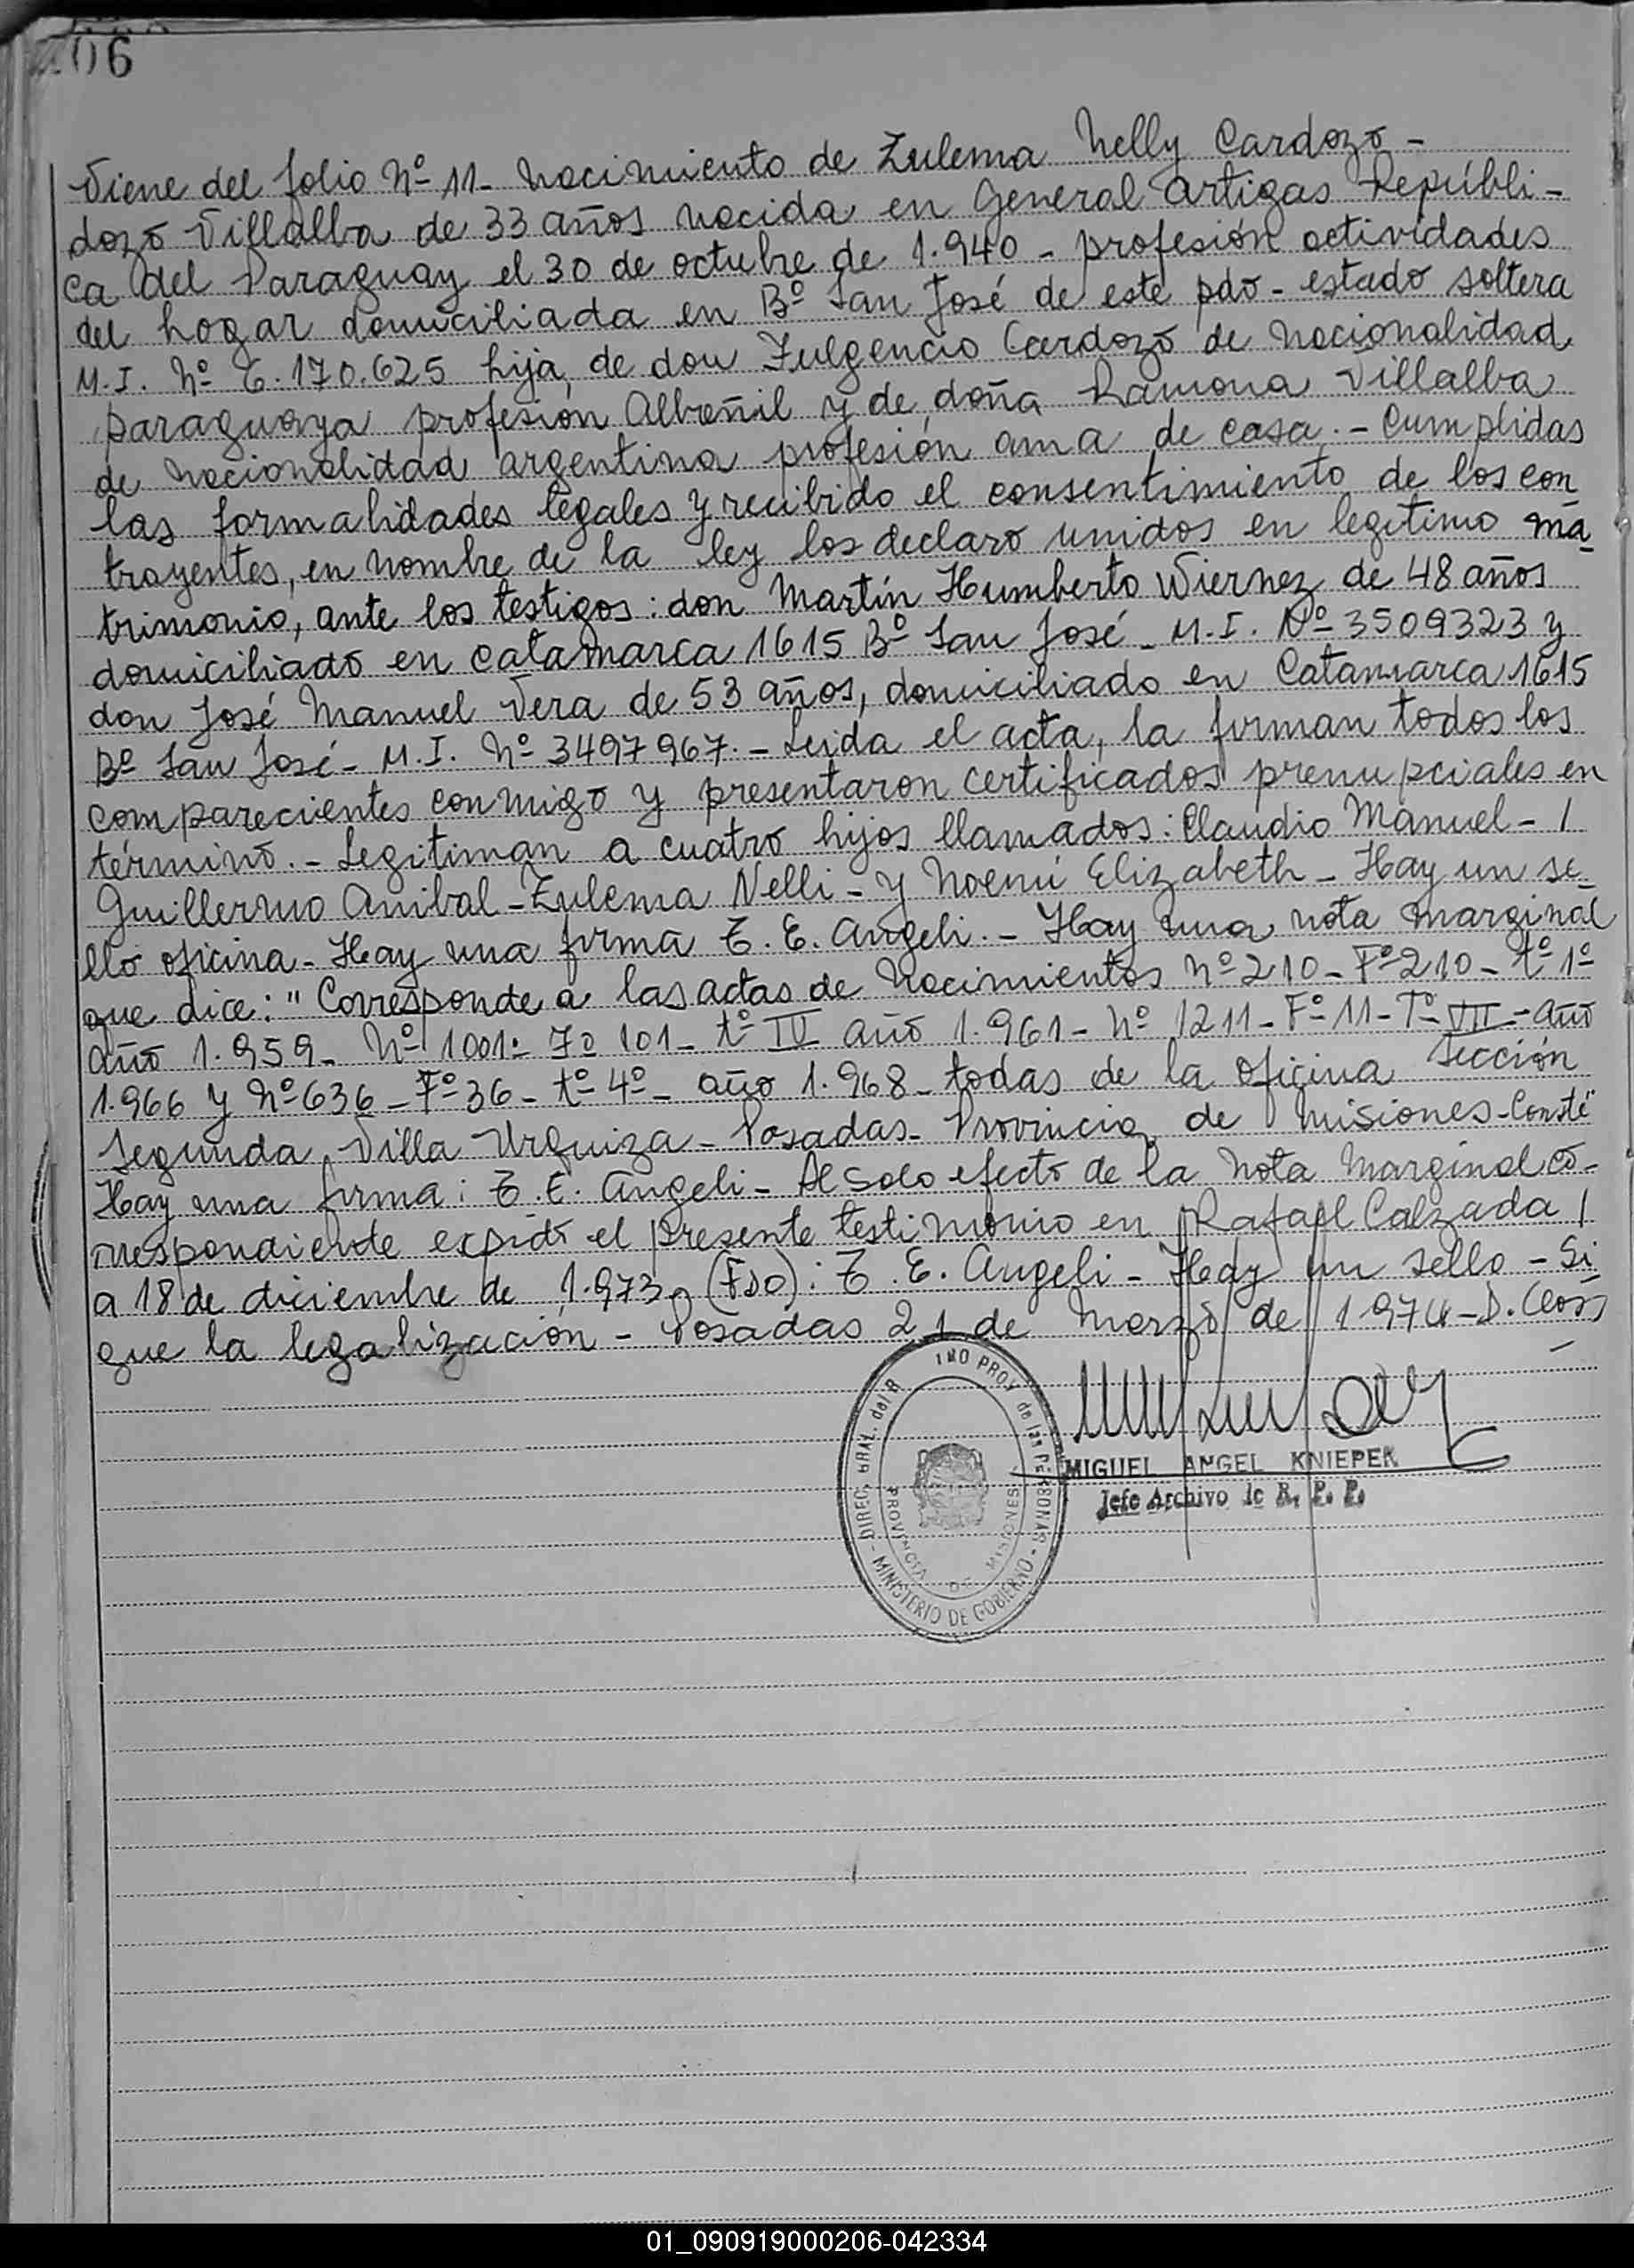 06
Viene del folio Nº 11- Nacimiento de Zulema Nelly Cardozo -
dozo Villalba de 33 años nacida en General Artigas Repúbli-
ca del Paraguay el 30 de octubre de 1.940 - profesión actividades
del hogar domiciliada en Bº San José de este pdo - estado soltera
M.I. Nº 6.170.625 hija de don Fulgencio Cardozo de nacionalidad
paraguaya profesión Albañil y de doña Ramona Villalba
de nacionalidad argentina profesión ama de casa.- Cumplidas
las formalidades legales y recibido el consentimiento de los con
trayentes, en nombre de la ley los declaro unidos en legítimo ma
trimonio, ante los testigos: don Martín Humberto Wiernez de 48 años
domiciliado en Catamarca 1615 Bº San José - M.I. Nº 3509323 y
don José Manuel Vera de 53 años, domiciliado en Catamarca 1615
Bº San José - M.I. Nº 3497967.- Leída el acta, la firman todos los
comparecientes conmigo y presentaron certificados prenupciales en
término.- Legitiman a cuatro hijos llamados: Claudio Manuel - /
Guillermo Anibal - Zulema Nelli - y Noemí Elizabeth - Hay un se
llo oficina - Hay una firma E. E. Angeli.- Hay una nota marginal
que dice: "Corresponde a las actas de Nacimientos Nº 210 - Fº 210 - tº 1º
año 1.959 - Nº 1001- Fº 101 - tº IV año 1.961 - Nº 1211 - Fº 11 - Tº VII - año
1.966 y Nº 636 - Fº 36 - tº 4º - año 1.968 - todas de la oficina Sección
Segunda Villa Urquiza - Posadas - Provincia de Misiones - Conste"
Hay una firma: E. E. Angeli - Al solo efecto de la Nota Marginal co-
rrespondiente expido el presente testimonio en Rafael Calzada /
a 18 de diciembre de 1.973. (Fdo): E. E. Angeli - Hay un sello - Si
gue la legalización - Posadas 21 de Marzo de 1.974 - D.
MIGUEL ANGEL KNIEPER
Jefe Archivo R. P. P.
DIREC. GRAL. del R PROV de las PERSONAS - MINISTERIO DE GOBIERNO -
PROVINCIA DE MISIONES
01_090919000206-042334